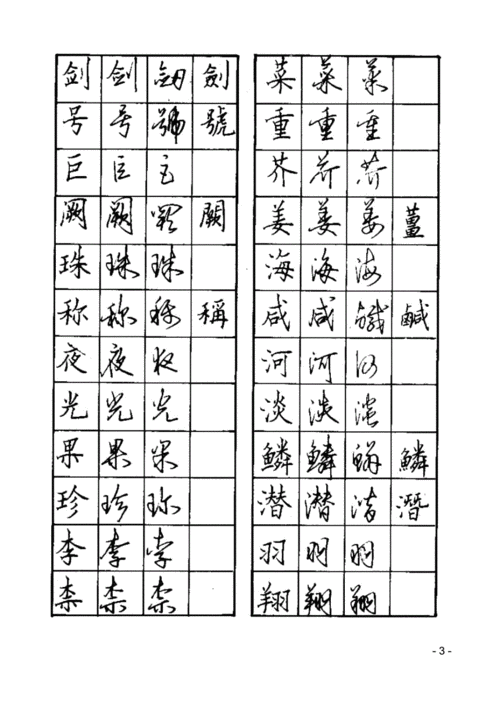 剑 剑 劒 劍
号 号 號 號
巨 巨 巨
阙 阙 闕 闕
珠 珠 珠
称 称 稱 稱
夜 夜 夜
光 光 光
果 果 果
珍 珍 珍
李 李 李
柰 柰 柰
菜 菜 菜
重 重 重
芥 芥 芥
姜 姜 姜 薑
海 海 海
咸 咸 鹹 鹹
河 河 河
淡 淡 淡
鳞 鳞 鳞 鱗
潜 潜 潜 潛
羽 羽 羽
翔 翔 翔
- 3 -